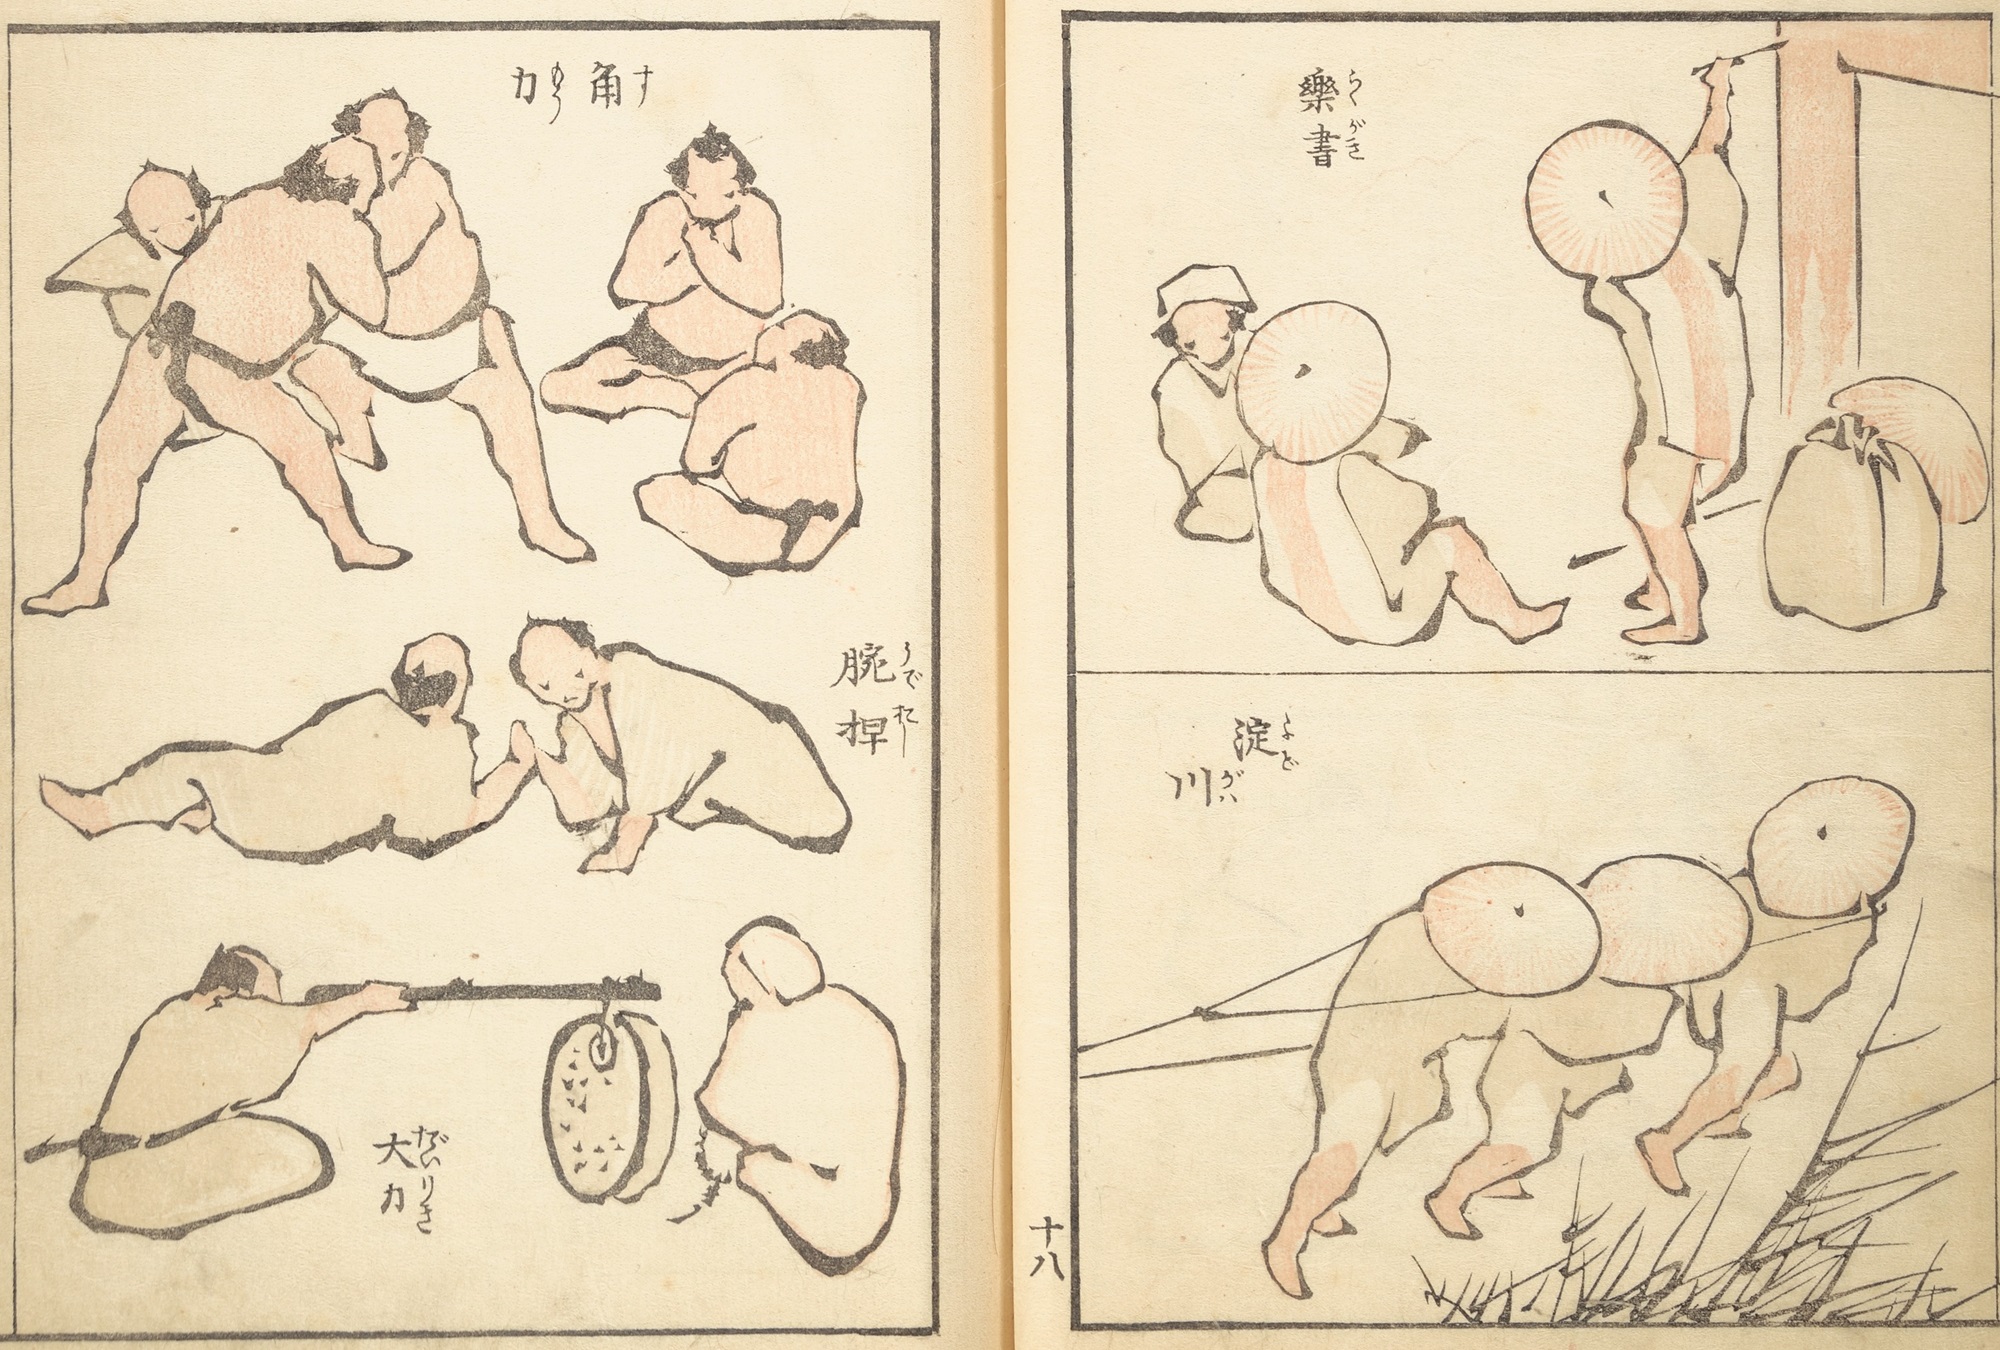 樂書
らくがき
淀川
よどがハ
十八
角力
すもう
腕捍
うでおし
大力
だいりき